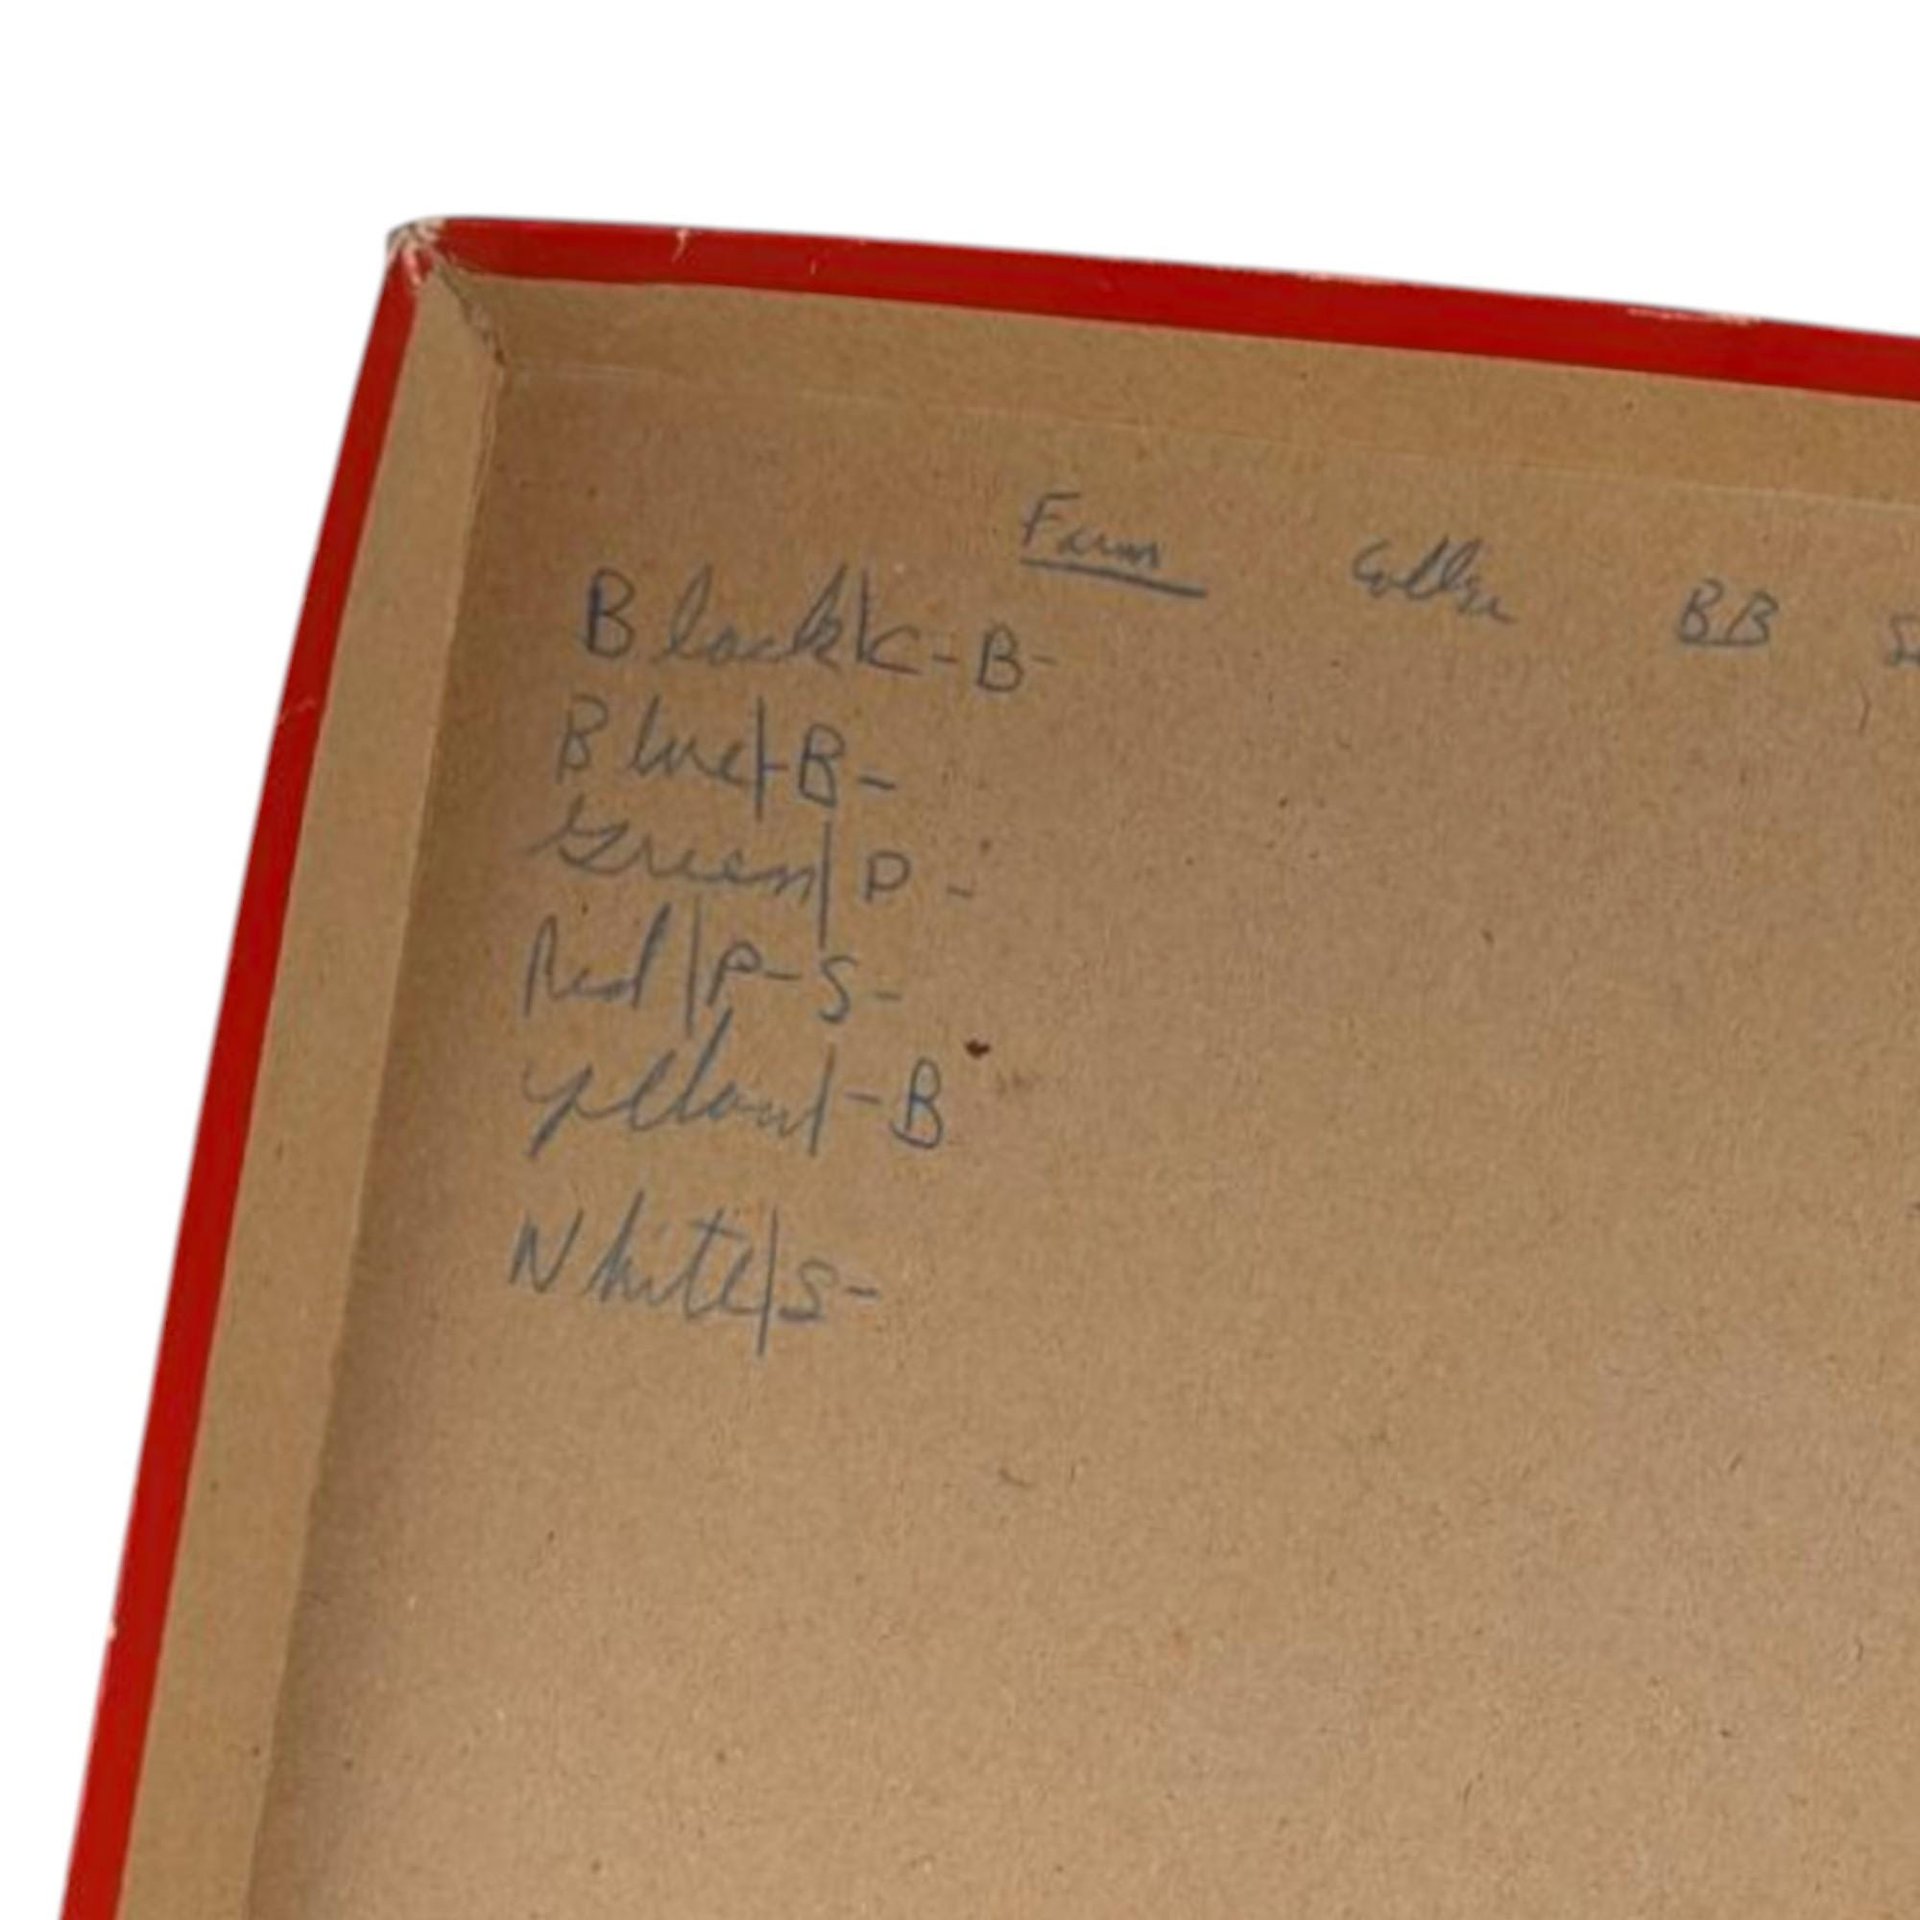 Farm College BB
Black|C-B-
Blue|-B-
Green|P-
Red|P-S-
Yellow|-B
White|S-